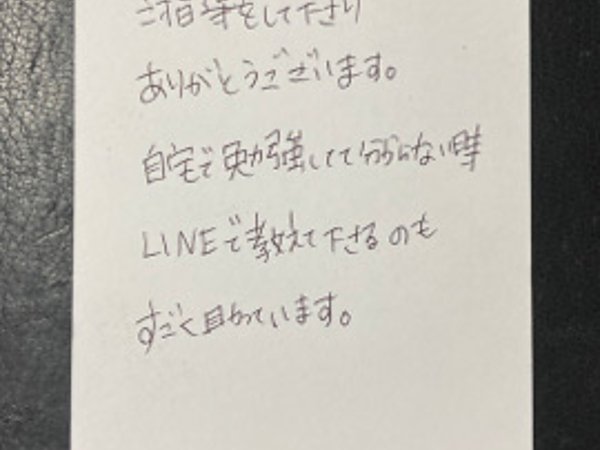 ご指導をして下さり
ありがとうございます。
自宅で勉強してて分からない時
LINEで教えて下さるのも
すごく助かっています。